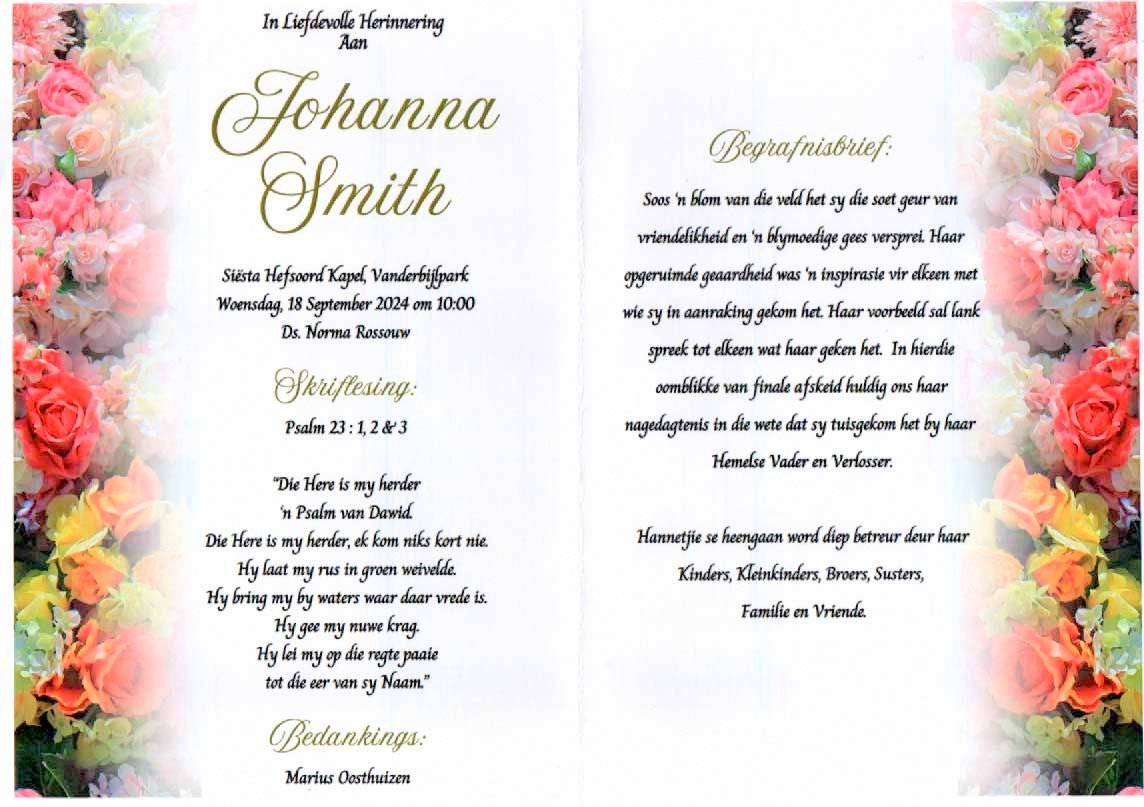 In Liefdevolle Herinnering
Aan
Johanna
Smith
Siësta Hefsoord Kapel, Vanderbijlpark
Woensdag, 18 September 2024 om 10:00
Ds. Norma Rossouw
Skriflesing:
Psalm 23 : 1, 2 & 3
“Die Here is my herder
‘n Psalm van Dawid.
Die Here is my herder, ek kom niks kort nie.
Hy laat my rus in groen weivelde.
Hy bring my by waters waar daar vrede is.
Hy gee my nuwe krag.
Hy lei my op die regte paaie
tot die eer van sy Naam.”
Bedankings:
Marius Oosthuizen
Begrafnisbrief:
Soos ‘n blom van die veld het sy die soet geur van
vriendelikheid en ‘n blymoedige gees versprei. Haar
opgeruimde geaardheid was ‘n inspirasie vir elkeen met
wie sy in aanraking gekom het. Haar voorbeeld sal lank
spreek tot elkeen wat haar geken het. In hierdie
oomblikke van finale afskeid huldig ons haar
nagedagtenis in die wete dat sy tuisgekom het by haar
Hemelse Vader en Verlosser.
Hannetjie se heengaan word diep betreur deur haar
Kinders, Kleinkinders, Broers, Susters,
Familie en Vriende.